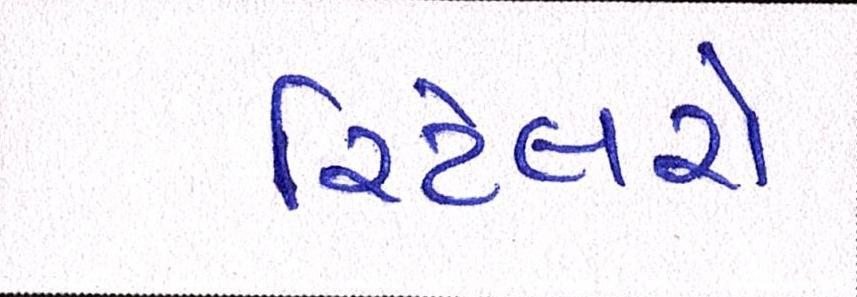 રિટેલરો